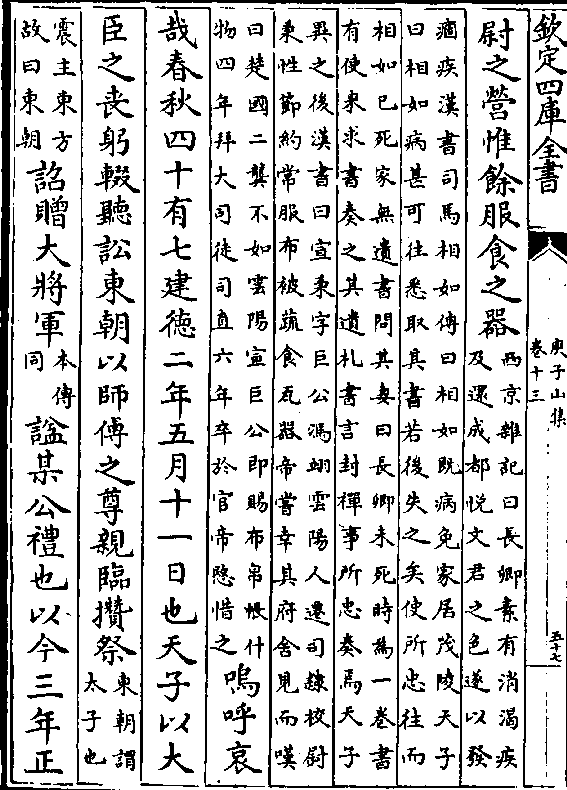 欽定四庫全書
庾子山集
卷十三
五十七
尉之營惟餘服食之器
西京雜記曰長卿素有消渴疾
及還成都悅文君之色遂以發
痼疾漢書司馬相如傳曰相如既病免家居茂陵天子
曰相如病甚可往悉取其書若後失之矣使所忠往而
相如已死家無遺書問其妻曰長卿未死時為一卷書
有使來求書奏之其遺札書言封禪事所忠奏焉天子
異之後漢書曰宣秉字巨公馮翊雲陽人遷司隸校尉
秉性節約常服布被蔬食瓦器帝嘗幸其府舍見而嘆
曰楚國二龔不如雲陽宣巨公即賜布帛帳什
物四年拜大司徒司直六年卒於官帝愍惜之
嗚呼哀
哉春秋四十有七建德二年五月十一日也天子以大
臣之喪躬輟聽訟東朝以師傅之尊親臨攢祭
東朝謂
太子也
震主東方
故曰東朝
詔贈大將軍
本傳
同
諡某公禮也以今三年正